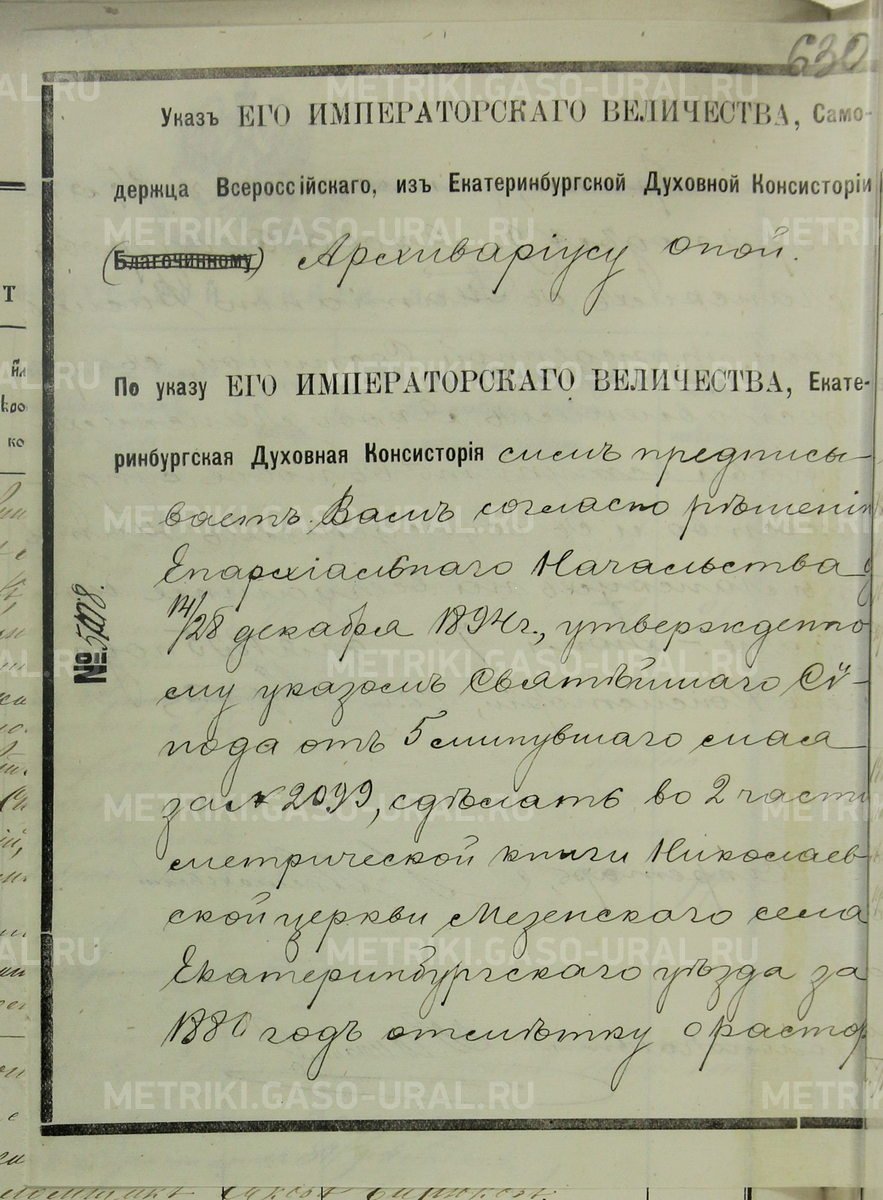 630
Указъ ЕГО ИМПЕРАТОРСКАГО ВЕЛИЧЕСТВА, Само-
держца Всероссійскаго, изъ Екатеринбургской Духовной Консисторіи
(Благочинному) Архиваріусу оной.
По указу ЕГО ИМПЕРАТОРСКАГО ВЕЛИЧЕСТВА, Екате-
ринбургская Духовная Консисторія симъ предписы-
ваетъ Вамъ согласно рѣшенія
Епархіальнаго Начальства
14/28 декабря 1894 г., утвержденно-
му указомъ Святѣйшаго Сѵ-
нода отъ 5 минувшаго мая
за № 2099, сдѣлать во 2 части
метрической книги Николаев-
ской церкви Мезенскаго села
Екатеринбургскаго уѣзда за
1880 годъ отмѣтку о растор
№
METRIKI.GASO-URAL.RU